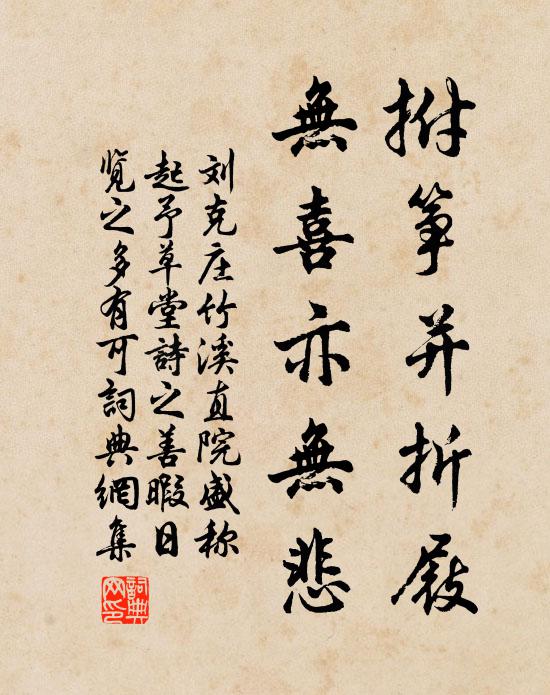 拊筝并折屐
無喜亦無悲
刘克庄竹溪直院盛称
起予草堂詩之善暇日
览之多有可詞典網集
詞典网印